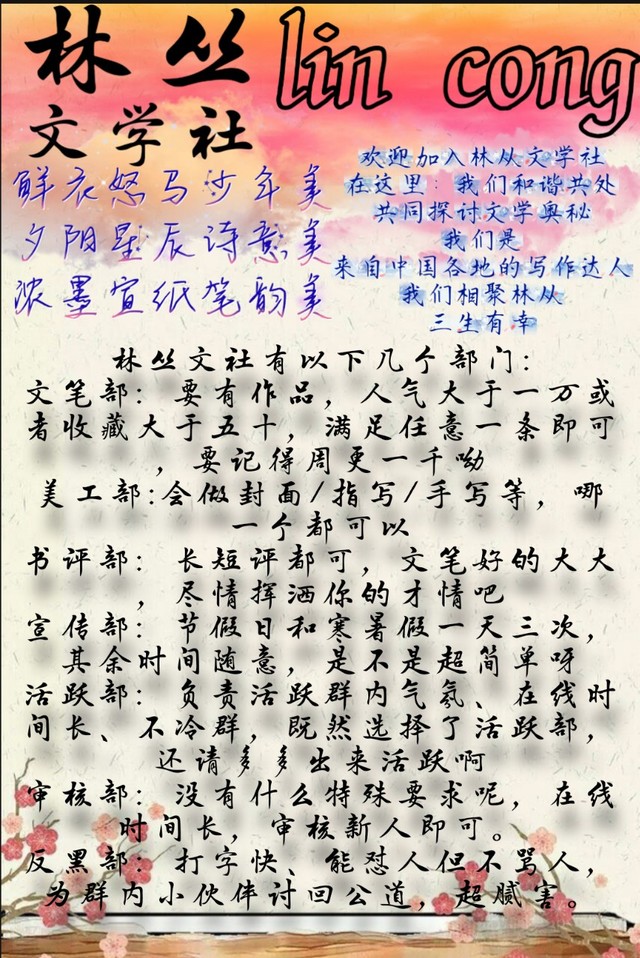 林丛
lin cong
文学社
鲜衣怒马少年美
夕阳星辰诗意美
浓墨宣纸笔韵美
欢迎加入林从文学社
在这里：我们和谐共处
共同探讨文学奥秘
我们是
来自中国各地的写作达人
我们相聚林从
三生有幸
林丛文社有以下几个部门：
文笔部：要有作品，人气大于一万或
者收藏大于五十，满足任意一条即可
，要记得周更一千呦
美工部：会做封面/指写/手写等，哪
一个都可以
书评部：长短评都可，文笔好的大大
，尽情挥洒你的才情吧
宣传部：节假日和寒暑假一天三次，
其余时间随意，是不是超简单呀
活跃部：负责活跃群内气氛、在线时
间长、不冷群，既然选择了活跃部，
还请多多出来活跃啊
审核部：没有什么特殊要求呢，在线
时间长，审核新人即可。
反黑部：打字快、能怼人但不骂人，
为群内小伙伴讨回公道，超腻害。